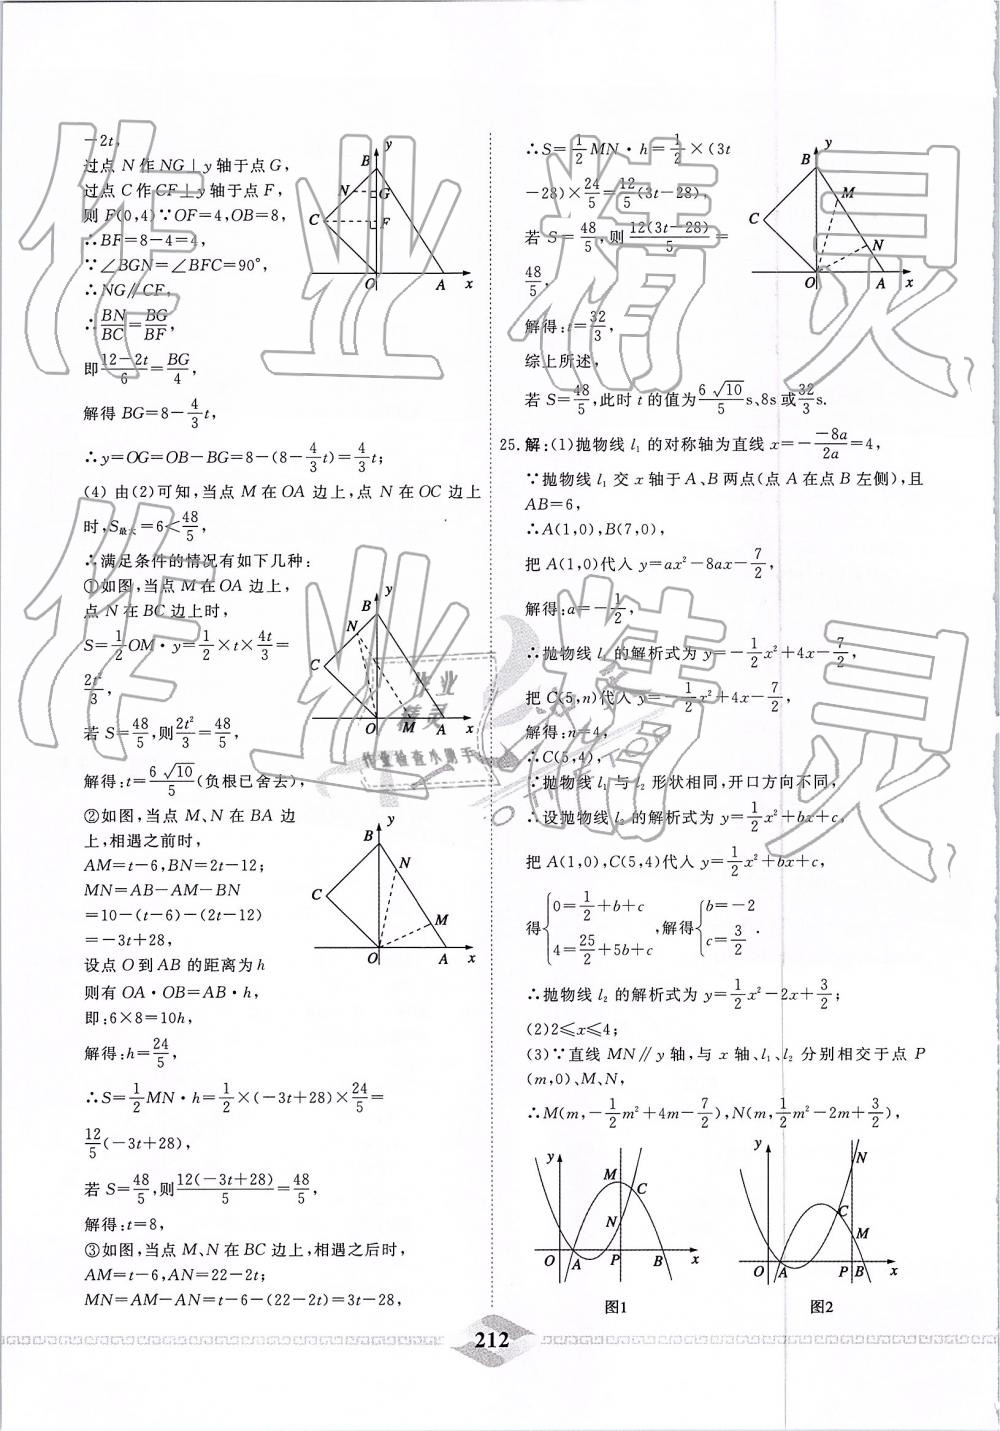 -2t,
过点 N 作 NG⊥y 轴于点 G,
过点 C 作 CF⊥y 轴于点 F,
则 F(0,4)∵OF=4,OB=8,
∴BF=8-4=4,
∵∠BGN=∠BFC=90°,
∴NG∥CF,
∴BN/BC=BG/BF,
即(12-2t)/6=BG/4,
解得 BG=8-4/3t,
∴y=OG=OB-BG=8-(8-4/3t)=4/3t;
(4) 由(2)可知,当点 M 在 OA 边上,点 N 在 OC 边上
时,S最大=6<48/5,
∴满足条件的情况有如下几种:
①如图,当点 M 在 OA 边上,
点 N 在 BC 边上时,
S=1/2OM·y=1/2×t×4t/3=
2t²/3,
若 S=48/5,则2t²/3=48/5,
解得:t=6√10/5(负根已舍去),
②如图,当点 M、N 在 BA 边
上,相遇之前时,
AM=t-6,BN=2t-12;
MN=AB-AM-BN
=10-(t-6)-(2t-12)
=-3t+28,
设点 O 到 AB 的距离为 h
则有 OA·OB=AB·h,
即:6×8=10h,
解得:h=24/5,
∴S=1/2MN·h=1/2×(-3t+28)×24/5=
12/5(-3t+28),
若 S=48/5,则12(-3t+28)/5=48/5,
解得:t=8,
③如图,当点 M、N 在 BC 边上,相遇之后时,
AM=t-6,AN=22-2t;
MN=AM-AN=t-6-(22-2t)=3t-28,
y
B
N
G
C
F
O
A
x
y
B
N
C
O
M
A
x
y
B
N
C
M
O
A
x
∴S=1/2MN·h=1/2×(3t
-28)×24/5=12/5(3t-28),
若 S=48/5,则12(3t-28)/5=
48/5,
解得:t=32/3,
综上所述,
若 S=48/5,此时 t 的值为6√10/5s、8s 或32/3s.
25. 解:(1)抛物线 l₁ 的对称轴为直线 x=-(-8a)/2a=4,
∵抛物线 l₁ 交 x 轴于 A、B 两点(点 A 在点 B 左侧),且
AB=6,
∴A(1,0),B(7,0),
把 A(1,0)代入 y=ax²-8ax-7/2,
解得:a=-1/2,
∴抛物线 l₁ 的解析式为 y=-1/2x²+4x-7/2,
把 C(5,n)代入 y=-1/2x²+4x-7/2,
解得:n=4,
∴C(5,4),
∵抛物线 l₁ 与 l₂ 形状相同,开口方向不同,
∴设抛物线 l₂ 的解析式为 y=1/2x²+bx+c,
把 A(1,0),C(5,4)代入 y=1/2x²+bx+c,
得{0=1/2+b+c
4=25/2+5b+c,解得{b=-2
c=3/2.
∴抛物线 l₂ 的解析式为 y=1/2x²-2x+3/2;
(2)2≤x≤4;
(3)∵直线 MN∥y 轴,与 x 轴、l₁、l₂ 分别相交于点 P
(m,0)、M、N,
∴M(m,-1/2m²+4m-7/2),N(m,1/2m²-2m+3/2),
y
B
M
C
N
O
A
x
y
M
C
N
O
A
P
B
x
图1
y
N
C
M
O
A
P
B
x
图2
作业精灵
作业精灵
作业
精灵
作业检查小助手
212